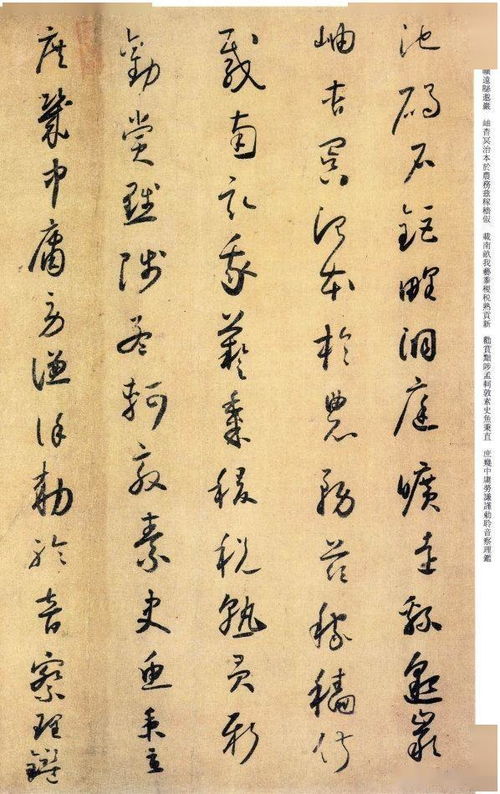 曠遠緜邈巖 岫杳冥治本於農務茲稼穡俶 載南畝我藝黍稷稅熟貢新 勸賞黜陟孟軻敦素史魚秉直 庶幾中庸勞謙謹勅聆音察理鑑
池碣石鉅野洞庭曠遠緜邈巖
岫杳冥治本於農務茲稼穡俶
載南畝我藝黍稷稅熟貢新
勸賞黜陟孟軻敦素史魚秉直
庶幾中庸勞謙謹勅聆音察理鑑